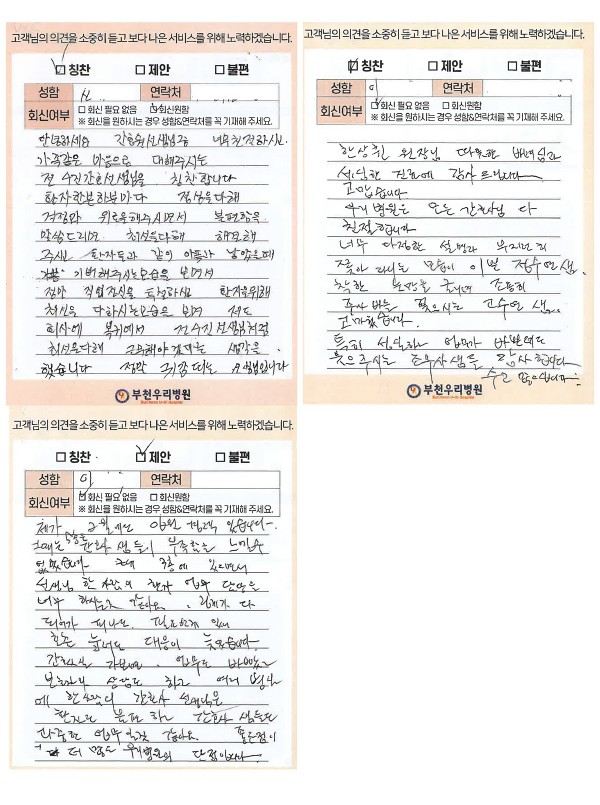 고객님의 의견을 소중히 듣고 보다 나은 서비스를 위해 노력하겠습니다.
칭찬 제안 불편
성함 연락처
회신여부 회신 필요 없음 회신원함
※ 회신을 원하시는 경우 성함&연락처를 꼭 기재해 주세요.
안녕하세요 간호워선생님들 너무 친절하시고
가족같은 마음으로 대해주시는
전수진간호선생님을 칭찬합니다
환자한분한분마다 정성을다해
걱정과 위로를해주시면서 불편함을
말씀드리면 최선을다해 해결해
주시고 환자들과 같이 아픔과 남았을때
기뻐해주시는모습을 보면서
정말 직업정신을 투철하신 환자를위해
최선을 다하시는모습을 보며 저도
회사에 복귀해서 전수진선생님처럼
최선을다해 근무해야겠다는 생각을
했습니다 정말 귀감되는 모범입니다
부천우리병원
고객님의 의견을 소중히 듣고 보다 나은 서비스를 위해 노력하겠습니다.
칭찬 제안 불편
성함 이 연락처
회신여부 회신 필요 없음 회신원함
※ 회신을 원하시는 경우 성함&연락처를 꼭 기재해 주세요.
한상훈 원장님 따뜻한 배려심과
성실한 진료에 감사드립니다
고맙습니다
우리 병원은 모든 간호사님 다
친절합니다
너무 다정한 설명과 부지런히
찾아 다니는 모습이 이쁜 정수연샘
착한 눈망울 굴리면 조용히
주사 바늘 꽂으시는 고수연 샘
고마웠습니다
특히 성실하고 업무가 바쁜데도
웃으주시는 조무사샘들 감사합니다
수고 많으십니다
부천우리병원
고객님의 의견을 소중히 듣고 보다 나은 서비스를 위해 노력하겠습니다.
칭찬 제안 불편
성함 이 연락처
회신여부 회신 필요 없음 회신원함
※ 회신을 원하시는 경우 성함&연락처를 꼭 기재해 주세요.
제가 2월에도 입원 했었습니다
그때는 간호사 샘들이 부족함을 느낄수
없었습니다 근데 3층에 있으면서
선생님 한 사람의 환자 업무 담당은
너무 하시는거 같아요. 링게가 다
되어가 떠나도 필요한게 있어
호출 눌러도 대응이 늦었습니다
간호사실 가보면 업무도 바쁘고
보호자와 상담도 하고 여러 병실
에 한 사람의 간호사 선생님은
환자도 불편 하고 간호사 샘들도
과중한 업무일것 같아요. 좋은점이
더 많은 우리병원의 단점입니다